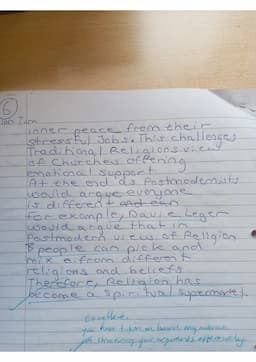 6
inner peace from their
stressful Jobs. This challenges
Traditional Religions view
of Churches offering
emotional support.
At the end as Postmodernists
would argue everyone
is different and can
for example, Davie Leger
would argue that in
Postmodern views of Religion
people can pick and
mix from different
religions and beliefs.
Therefore, Religion has
become a spiritual supermarket.
Excellent.
You have taken on board my advice